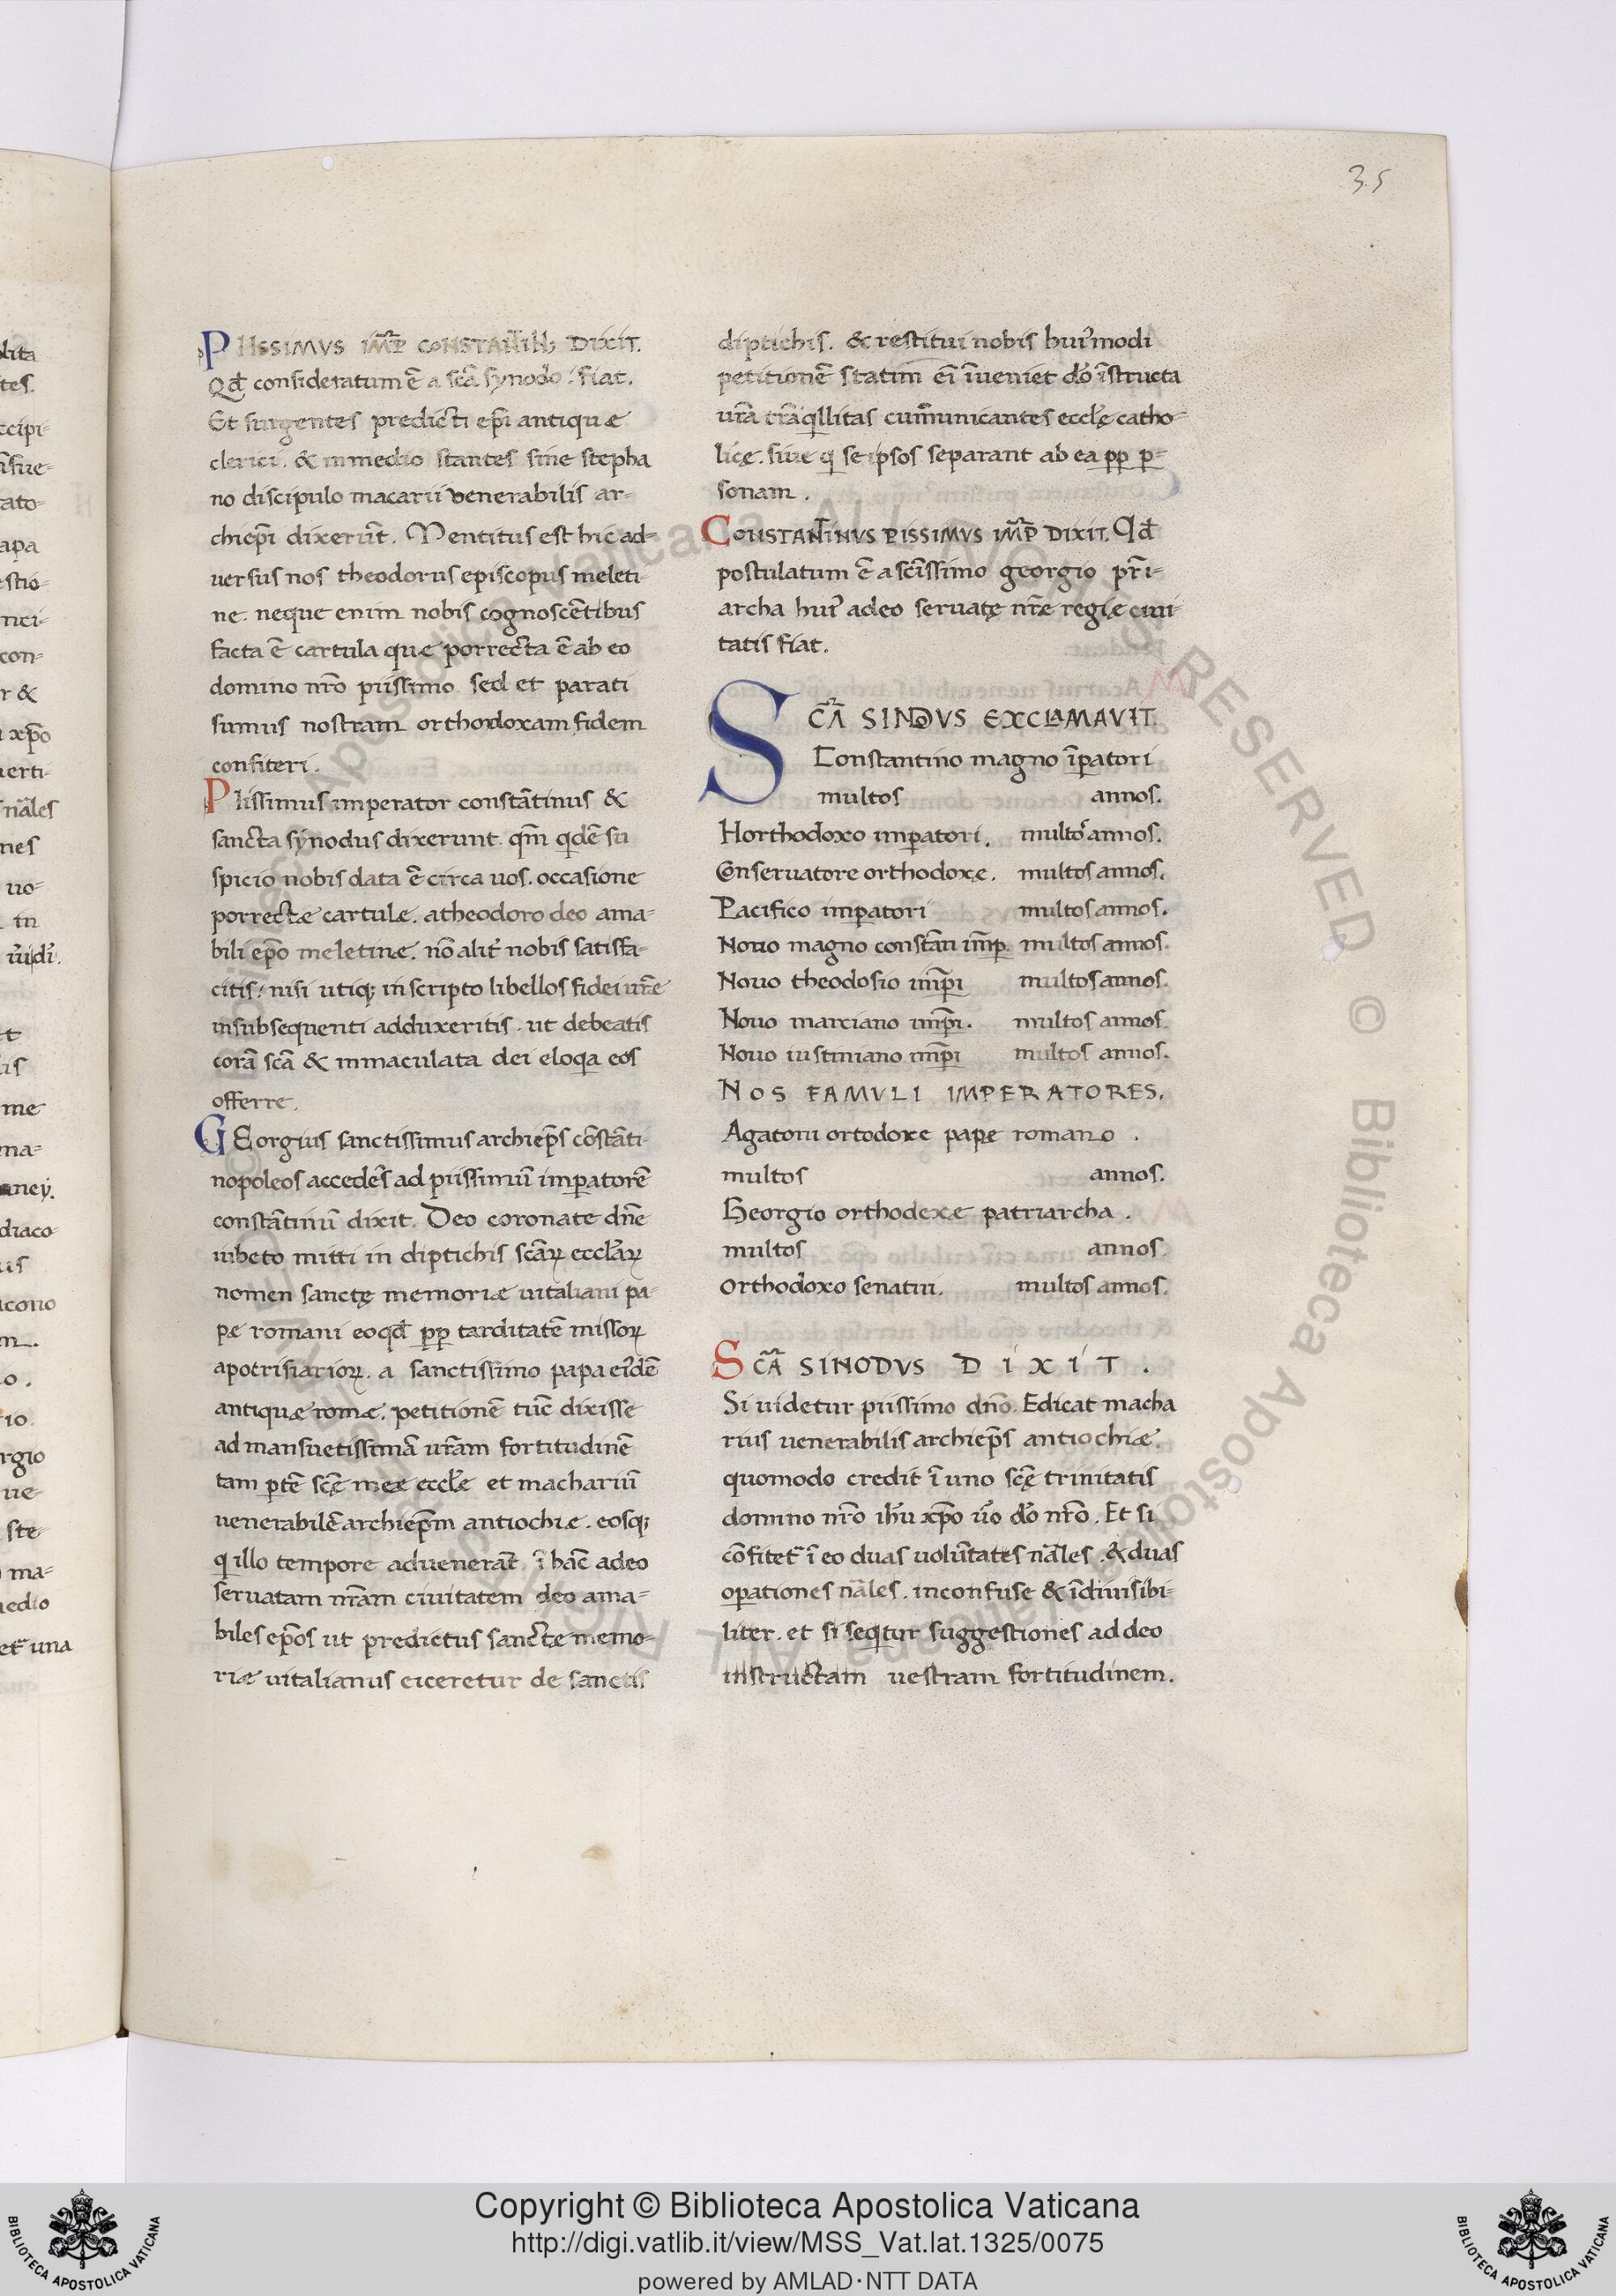 35
PIISSIMVS IMP̄R CONSTANTIN; DIXIT.
Qđ consideratum ē a scā synodo : fiat.
Et surgentes predicti ep̄i antiquæ
clerici . & inmedio stantes sine stepha
no discipulo macarii venerabilis ar-
chiep̄i dixerūt . Mentitus est hic ad-
uersus nos theodorus episcopus meleti-
ne . neque enim nobis cognoscētibus
facta ē cartula quæ porrecta ē ab eo
domino nr̄o piissimo . sed et parati
sumus nostram orthodoxam fidem
confiteri .
Piissimus imperator constātinus &
sancta synodus dixerunt . qm̄ qdē su
spicio nobis data ē circa uos . occasione
porrectæ cartule . a theodoro deo ama-
bili ep̄o meletinæ . nō alit̄ nobis satisfa-
citis : nisi utiq; inscripto libellos fidei ur̄e
insubsequenti adduxeritis . ut debeatis
corā scā & inmaculata dei eloqa eos
offerre .
GEorgius sanctissimus archiep̄s cōstāti-
nopoleos accedēs ad piissimū imp̱atorē
constātinū dixit . Deo coronate dn̄e
iubeto mitti in diptichis scāꝝ ecclāꝝ
nomen sanctę memoriæ uitaliani pa-
pæ romani eoqđ pp̱ tarditatē missoꝝ
apocrisiarioꝝ . a sanctissimo papa eiꝰdē
antiquæ romæ . petitionē tūc dixisse
ad mansuetissimā ur̄am fortitudinē
tam ꝑtē scę̄ meæ ecclę̄ et machariū
venerabilē archiep̄m antiochiæ . eosq;
q illo tempore aduenerāt ī hāc adeo
seruatam nr̄am ciuitatem deo ama-
biles ep̄os ut predictus sanctæ memo-
riæ uitalianus eiceretur de sanctis
diptichis . & restitui nobis huiꝰmodi
petitionē statim ei īueniet dō īstructa
ur̄a trāqllitas cum̄municantes ecclę̄ catho-
licę . siue q se ipsos separant ab ea pp̱ ꝑ-
sonam .
CONSTANTINVS PISSIMVS IMP̄R DIXIT. Qđ
postulatum ē a sc̄issimo georgio pr̄i-
archa huiꝰ adeo seruatę nr̄æ regię ciui
tatis fiat .
SCĀ SINODVS EXCLAMAVIT.
Constantino magno īp̱atori
multos annos.
Horthodoxo imp̱atori . multoˢ annos.
Conseruatore orthodoxę . multos annos.
Pacifico imp̱atori multos annos.
Nouo magno constāti im̄p multos annos.
Nouo theodosio imp̄i multos annos.
Nouo marciano imp̄i . multos annos.
Nouo iustiniano imp̄i multos annos.
NOS FAMVLI IMPERATORES.
Agatoni ortodoxe papę romano .
multos annos.
Georgio orthodexæ patriarcha .
multos annos.
Orthodoxo senatui . multos annos.
SCĀ SINODVS DIXIT .
Si uidetur piissimo dn̄o . Edicat macha
rius venerabilis archiep̄s antiochiæ
quomodo credit ī uno scę̄ trinitatis
domino nr̄o ih̄u xp̄o ūo dō nr̄o . Et si
cōfitet̄ ī eo duas uolūtates nāles . & duas
op̱ationes nāles . inconfuse & īdiuisibi-
liter . et si seqtur suggestiones ad deo
instructam uestram fortitudinem.
Copyright © Biblioteca Apostolica Vaticana
http://digi.vatlib.it/view/MSS_Vat.lat.1325/0075
powered by AMLAD·NTT DATA